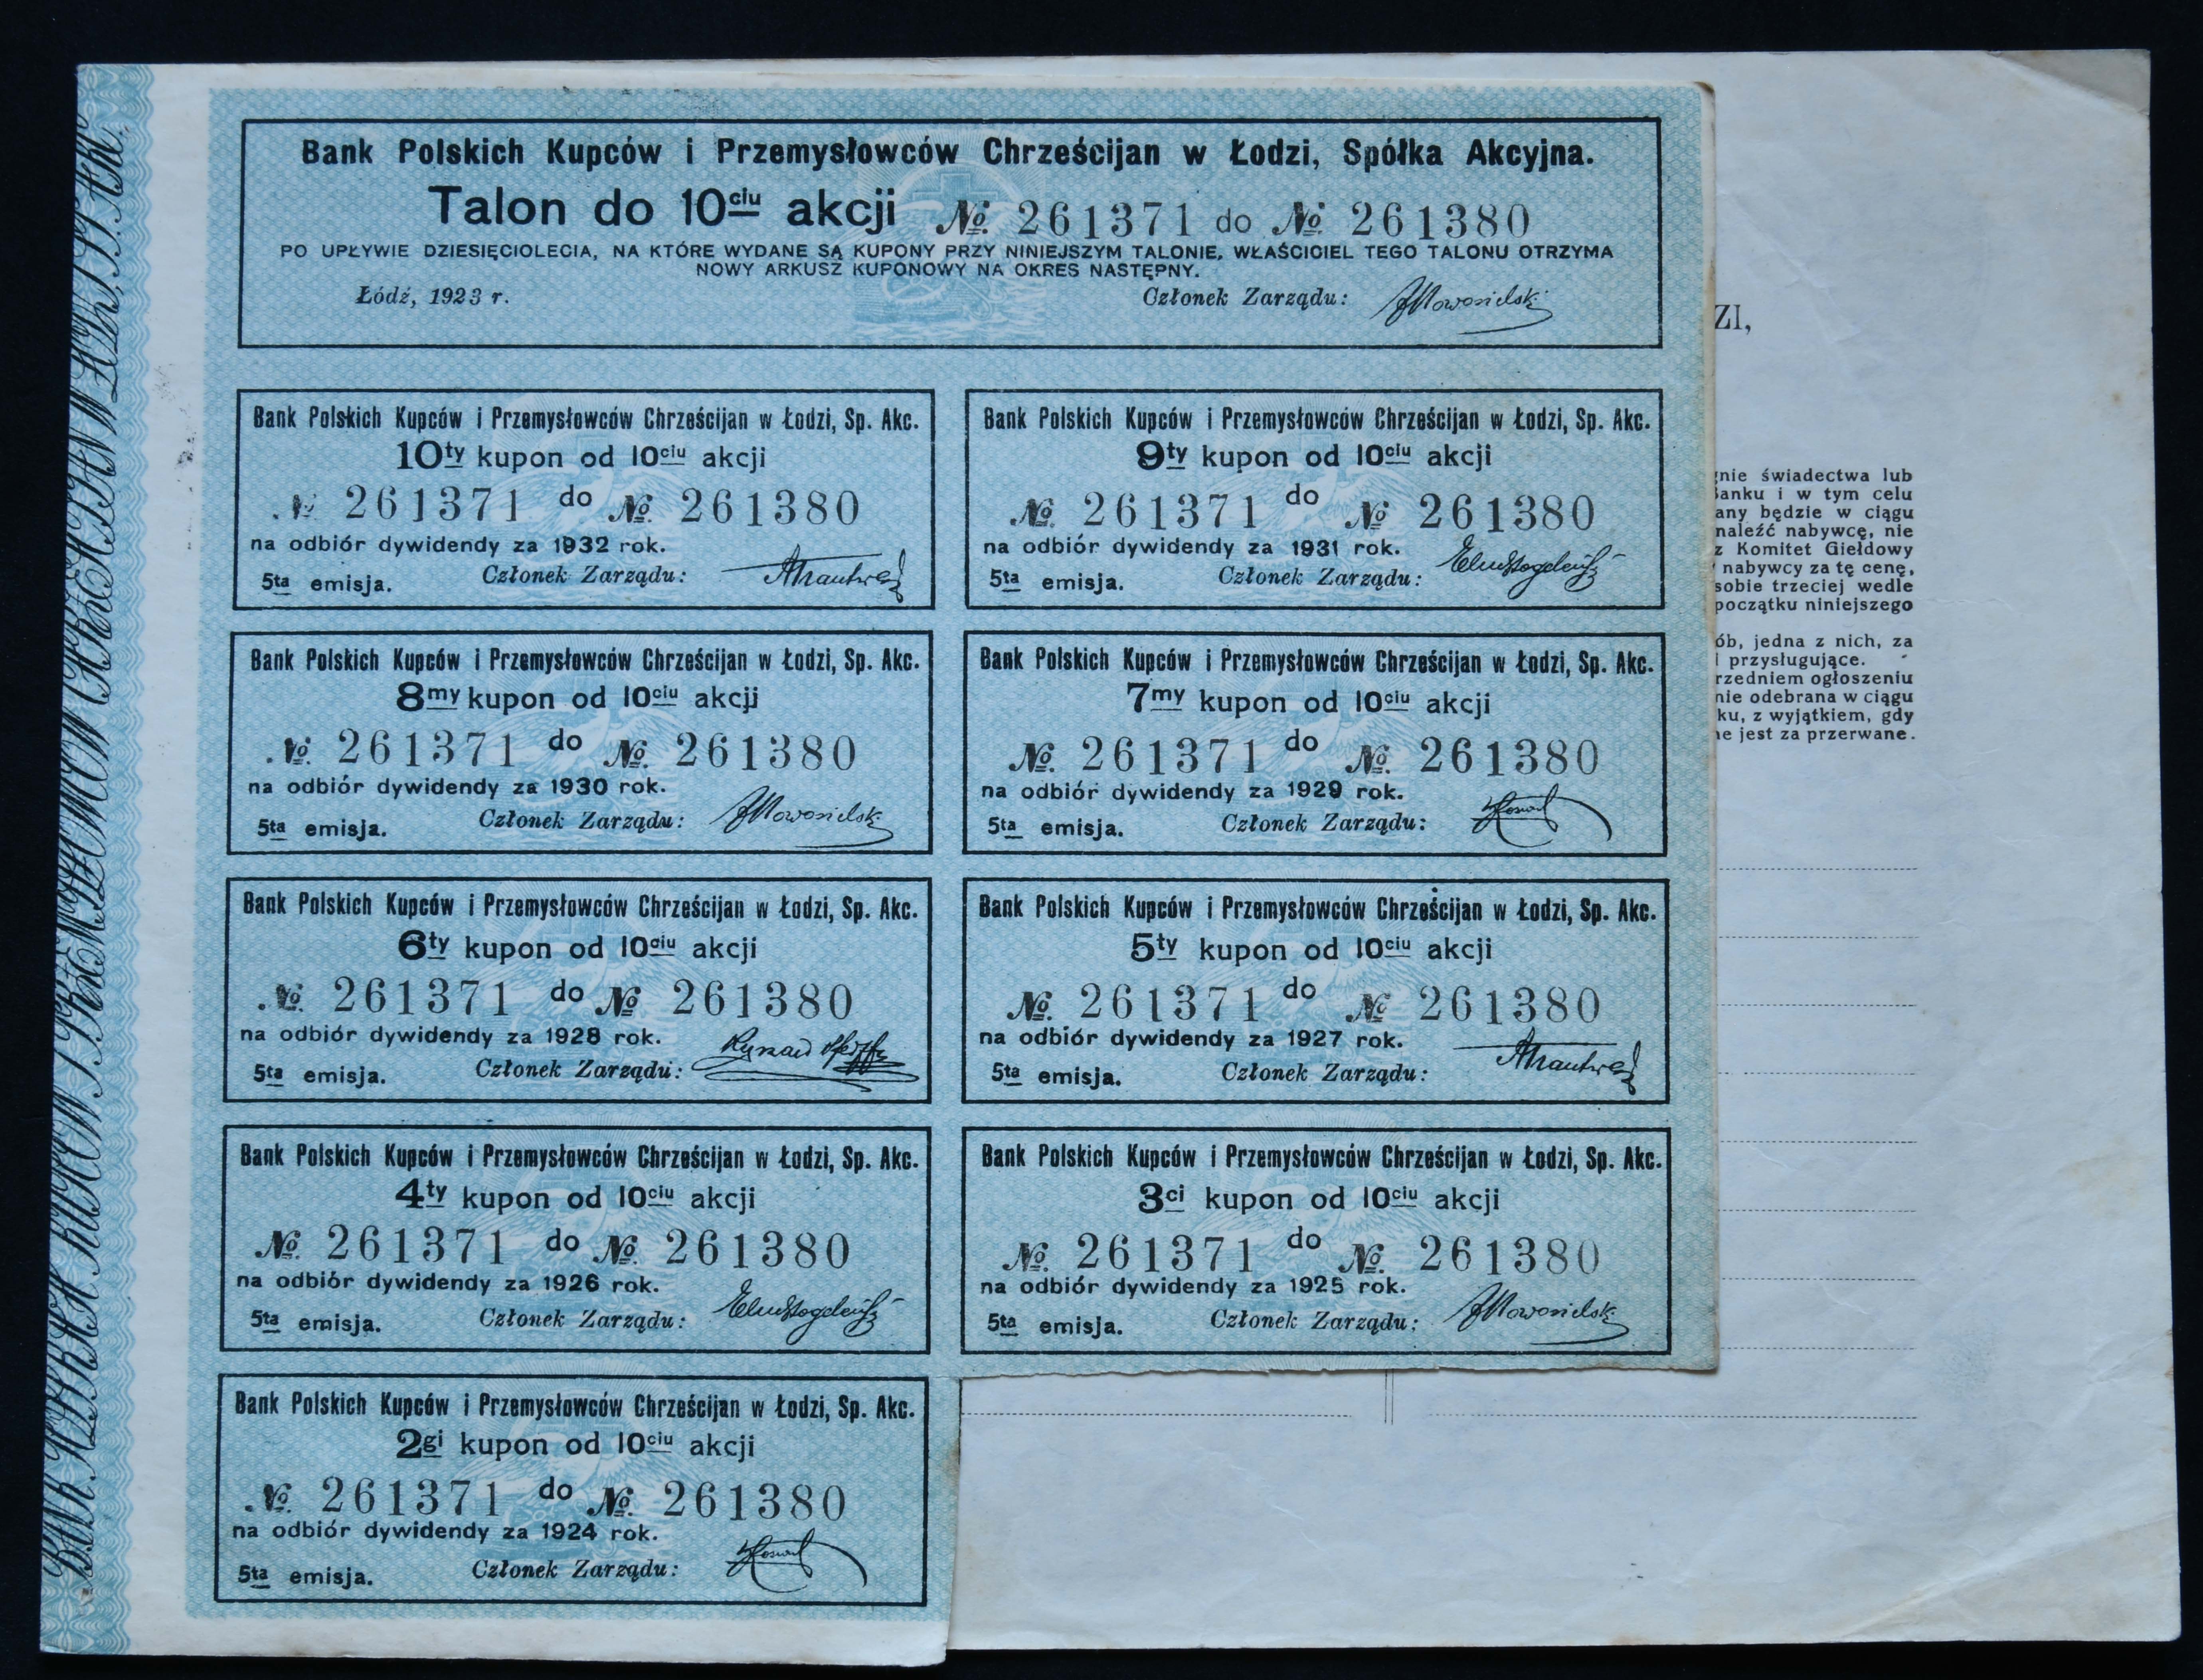 Bank Polskich Kupców i Przemysłowców Chrześcijan w Łodzi, Spółka Akcyjna.
Talon do 10ciu akcji № 261371 do № 261380
PO UPŁYWIE DZIESIĘCIOLECIA, NA KTÓRE WYDANE SĄ KUPONY PRZY NINIEJSZYM TALONIE, WŁAŚCICIEL TEGO TALONU OTRZYMA
NOWY ARKUSZ KUPONOWY NA OKRES NASTĘPNY.
Łódź, 1923 r. Członek Zarządu:
Bank Polskich Kupców i Przemysłowców Chrześcijan w Łodzi, Sp. Akc.
10ty kupon od 10ciu akcji
№ 261371 do № 261380
na odbiór dywidendy za 1932 rok.
5ta emisja. Członek Zarządu:
Bank Polskich Kupców i Przemysłowców Chrześcijan w Łodzi, Sp. Akc.
9ty kupon od 10ciu akcji
№ 261371 do № 261380
na odbiór dywidendy za 1931 rok.
5ta emisja. Członek Zarządu:
Bank Polskich Kupców i Przemysłowców Chrześcijan w Łodzi, Sp. Akc.
8my kupon od 10ciu akcji
№ 261371 do № 261380
na odbiór dywidendy za 1930 rok.
5ta emisja. Członek Zarządu:
Bank Polskich Kupców i Przemysłowców Chrześcijan w Łodzi, Sp. Akc.
7my kupon od 10ciu akcji
№ 261371 do № 261380
na odbiór dywidendy za 1929 rok.
5ta emisja. Członek Zarządu:
Bank Polskich Kupców i Przemysłowców Chrześcijan w Łodzi, Sp. Akc.
6ty kupon od 10ciu akcji
№ 261371 do № 261380
na odbiór dywidendy za 1928 rok.
5ta emisja. Członek Zarządu:
Bank Polskich Kupców i Przemysłowców Chrześcijan w Łodzi, Sp. Akc.
5ty kupon od 10ciu akcji
№ 261371 do № 261380
na odbiór dywidendy za 1927 rok.
5ta emisja. Członek Zarządu:
Bank Polskich Kupców i Przemysłowców Chrześcijan w Łodzi, Sp. Akc.
4ty kupon od 10ciu akcji
№ 261371 do № 261380
na odbiór dywidendy za 1926 rok.
5ta emisja. Członek Zarządu:
Bank Polskich Kupców i Przemysłowców Chrześcijan w Łodzi, Sp. Akc.
3ci kupon od 10ciu akcji
№ 261371 do № 261380
na odbiór dywidendy za 1925 rok.
5ta emisja. Członek Zarządu:
Bank Polskich Kupców i Przemysłowców Chrześcijan w Łodzi, Sp. Akc.
2gi kupon od 10ciu akcji
№ 261371 do № 261380
na odbiór dywidendy za 1924 rok.
5ta emisja. Członek Zarządu:
ZI,
świadectwa lub
i w tym celu
będzie w ciągu
nabywcę, nie
Komitet Giełdowy
nabywcy za tę cenę,
trzeciej wedle
początku niniejszego
jedna z nich, za
przysługujące.
ogłoszeniu
odebrana w ciągu
z wyjątkiem, gdy
jest za przerwane.